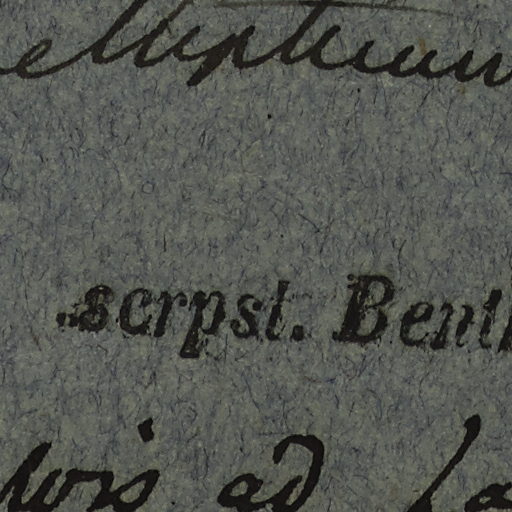 ellipticum
scrpst. Benth
ad